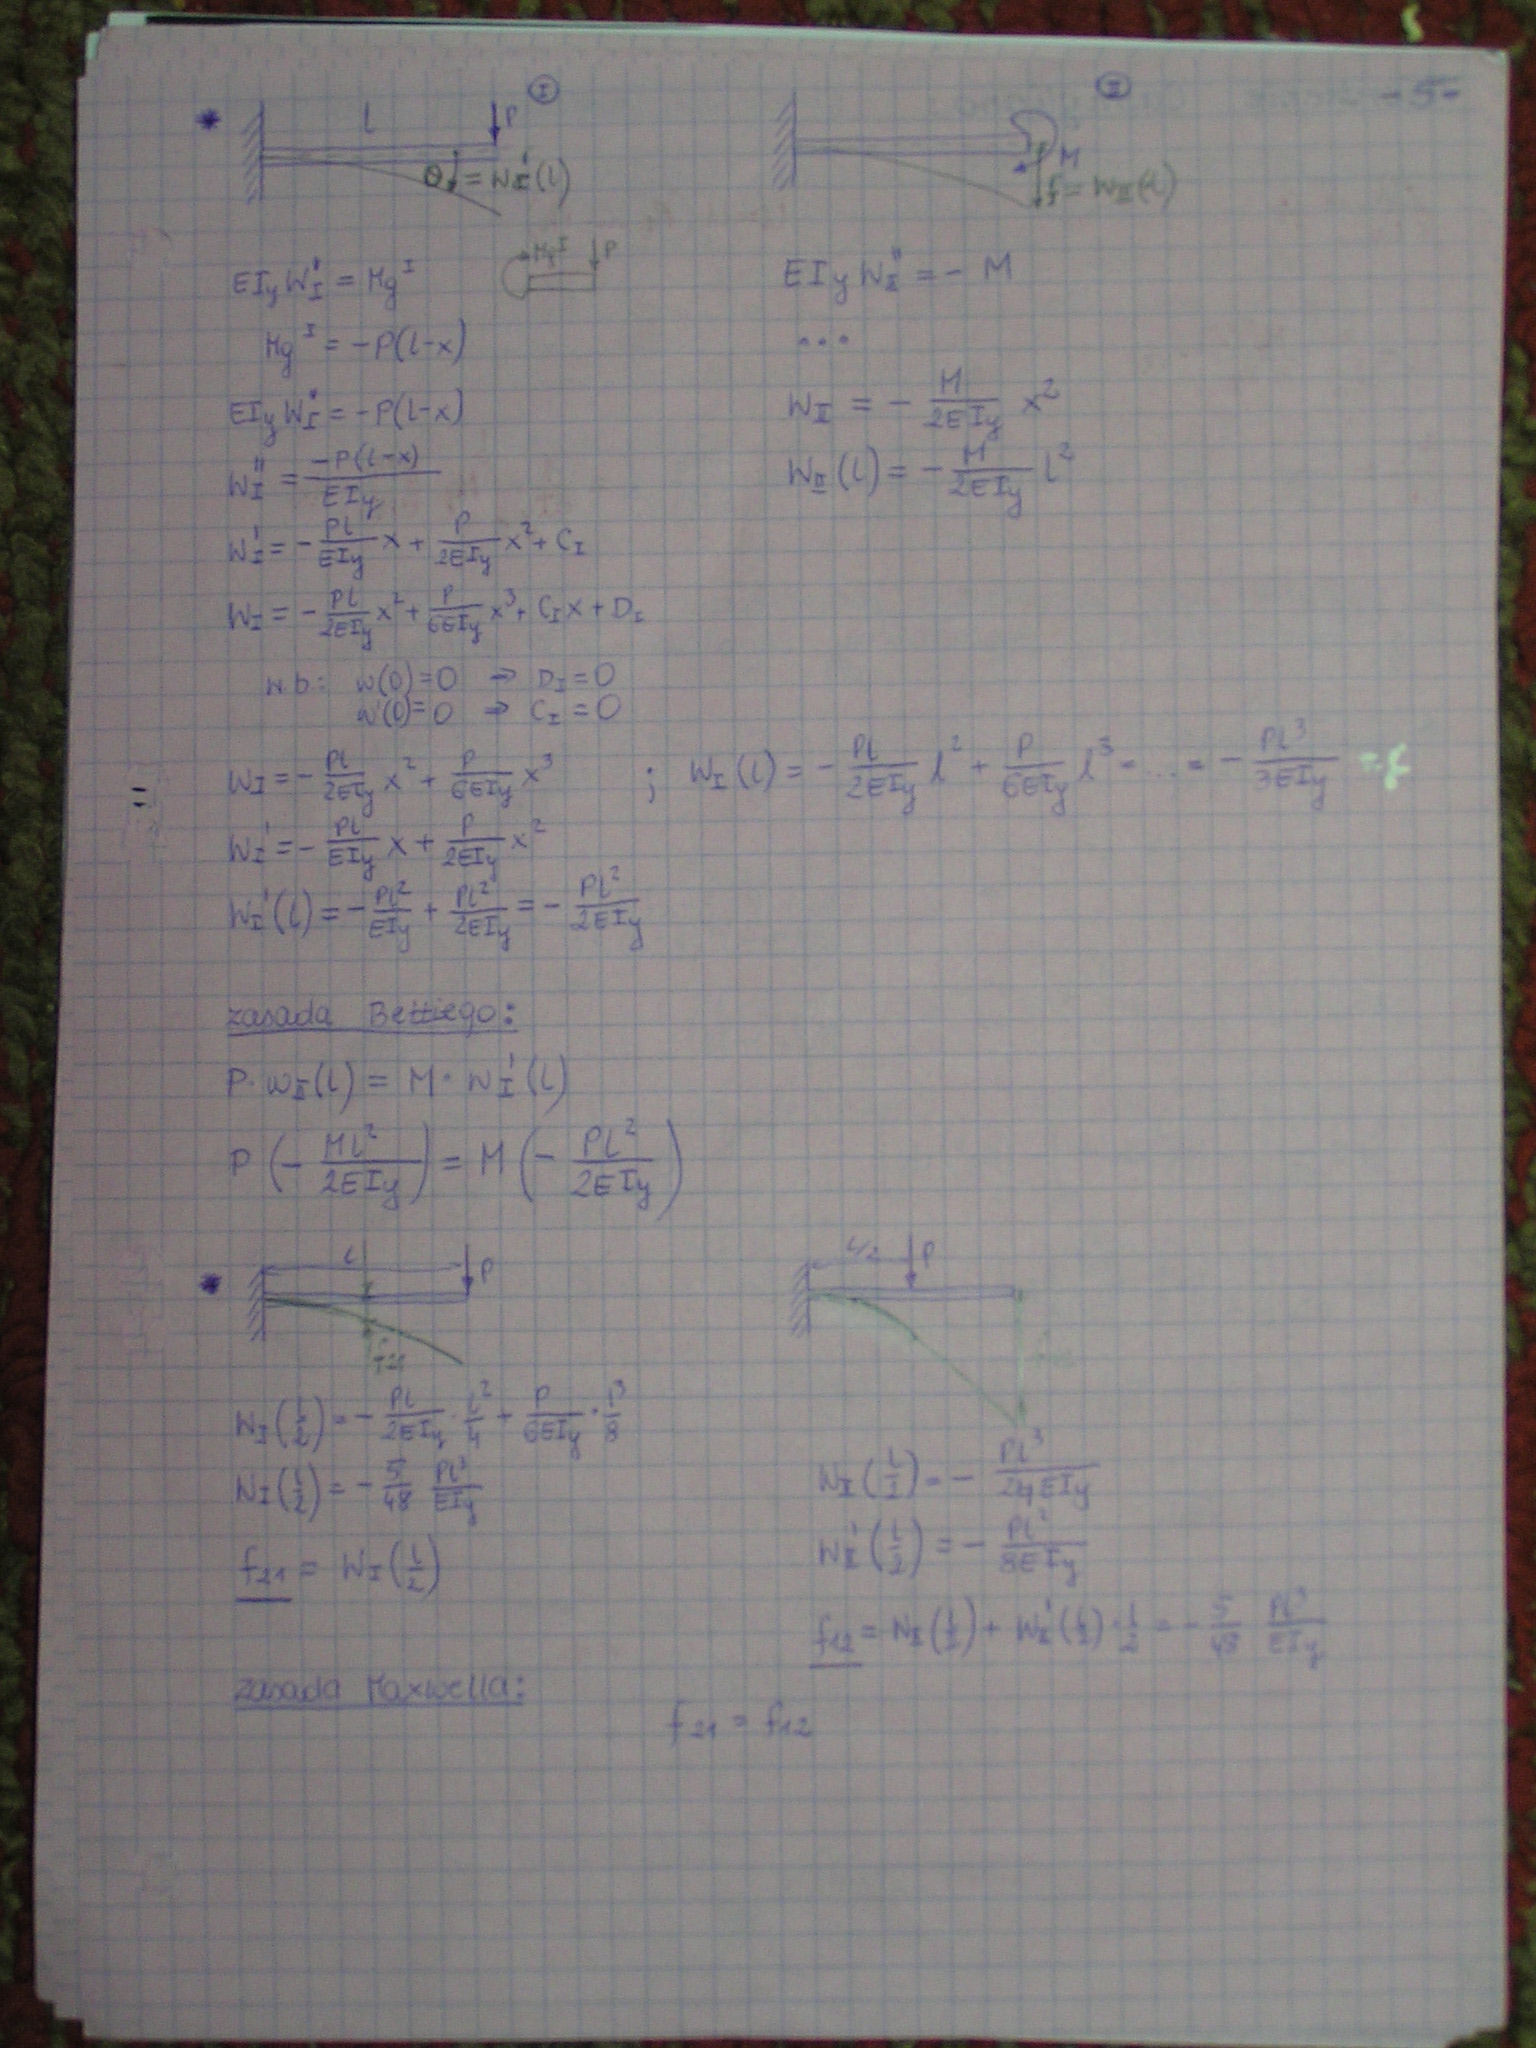 -5-
* l P Ⓘ
Θ = W_I'(l)
M_g^I P
EI_y W_I'' = M_g^I
M_g^I = -P(l-x)
EI_y W_I'' = -P(l-x)
W_I'' = \frac{-P(l-x)}{EI_y}
W_I' = -\frac{Pl}{EI_y}x + \frac{P}{2EI_y}x^2 + C_I
W_I = -\frac{Pl}{2EI_y}x^2 + \frac{P}{6EI_y}x^3 + C_I x + D_I
w.b: w(0)=0 → D_I=0
w'(0)=0 → C_I=0
!! W_I = -\frac{Pl}{2EI_y}x^2 + \frac{P}{6EI_y}x^3 ; W_I(l) = -\frac{Pl}{2EI_y}l^2 + \frac{P}{6EI_y}l^3 = ... = -\frac{Pl^3}{3EI_y} = f
W_I' = -\frac{Pl}{EI_y}x + \frac{P}{2EI_y}x^2
W_I'(l) = -\frac{Pl^2}{EI_y} + \frac{Pl^2}{2EI_y} = -\frac{Pl^2}{2EI_y}
M
f = W_II(l)
EI_y W_II'' = -M
...
W_II = -\frac{M}{2EI_y} x^2
W_II(l) = -\frac{M}{2EI_y} l^2
zasada Bettiego:
P·W_II(l) = M·W_I'(l)
P(-\frac{Ml^2}{2EI_y}) = M(-\frac{Pl^2}{2EI_y})
* l P
f_21
W_I(\frac{l}{2}) = -\frac{Pl}{2EI_y}·\frac{l^2}{4} + \frac{P}{6EI_y}·\frac{l^3}{8}
W_I(\frac{l}{2}) = -\frac{5}{48} \frac{Pl^3}{EI_y}
f_21 = W_I(\frac{l}{2})
l/2 P
W_II(\frac{l}{2}) = -\frac{Pl^3}{24EI_y}
W_II'(\frac{l}{2}) = -\frac{Pl^2}{8EI_y}
f_12 = W_II(\frac{l}{2}) + W_II'(\frac{l}{2})·\frac{l}{2} = -\frac{5}{48} \frac{Pl^3}{EI_y}
zasada Maxwella:
f_21 = f_12